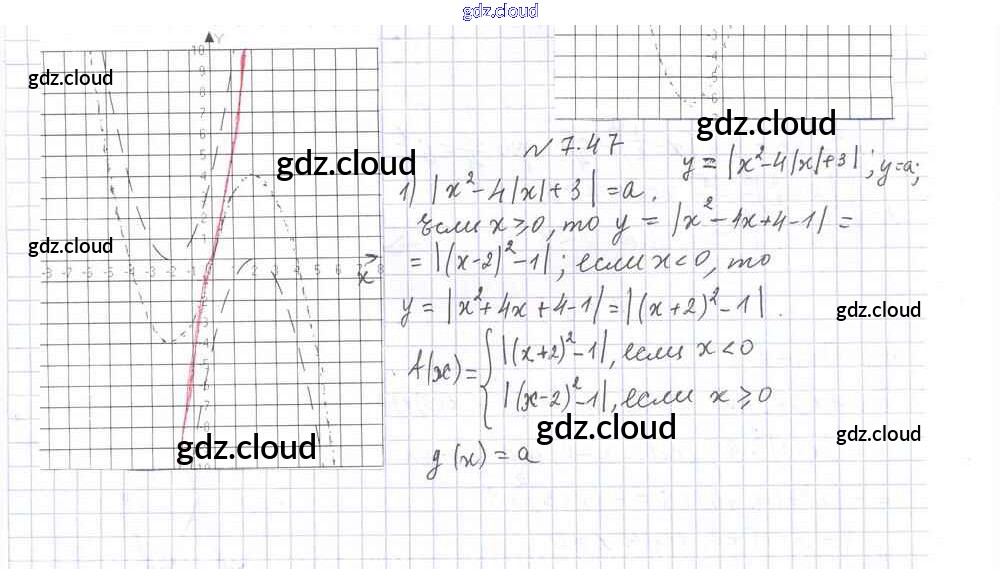 gdz.cloud
gdz.cloud
gdz.cloud
gdz.cloud
№ 7.47
1) |x²-4|x|+3| = a. y = |x²-4|x|+3|; y=a;
Если x ≥ 0, то y = |x²-4x+4-1| =
= |(x-2)²-1|; если x < 0, то
y = |x²+4x+4-1| = |(x+2)²-1|.
f(x) = { |(x+2)²-1|, если x < 0
|(x-2)²-1|, если x ≥ 0
g(x) = a
gdz.cloud
gdz.cloud
gdz.cloud
gdz.cloud
gdz.cloud